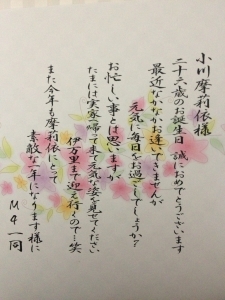 小川摩莉依様
二十六歳のお誕生日 誠におめでとうございます
最近なかなかお逢いできませんが
元気に毎日をお過ごしでしょうか?
お忙しい事とは思いますが
たまには実家に帰って来て元気な姿を見せてください
伊万里まで迎え行くので…笑
また今年も摩莉依にとって
素敵な一年になります様に
M4一同